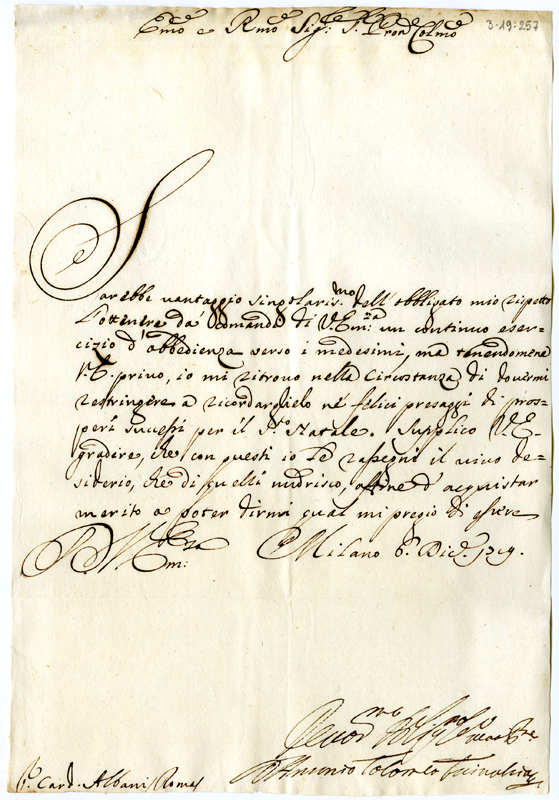 3-19-257
Emo e Rmo Sig.r S.r Pron Colmo
Sarebbe vantaggio singolaris.mo dell'obbligato mio rispetto
l'ottenere da comandi di V. Em.za un continuo eser=
cizio d'obbedienza verso i medesimi, ma tenendomene
V. E. privo, io mi ritrovo nella Circostanza di dovermi
restringere a ricordarglielo ne felici presaggi di pros=
peri successi per il S.to Natale. Supplico V. E.
gradire, che con questi io Le rassegni il vivo de=
siderio, che di quelli nudrisco, affine d'acquistar
merito a poter dirmi qual mi pregio di essere
D. V. Em.za Milano 6. Dic.e 1719.
Antonio Tolomeo Trivulzio
S.r Card. Albani Roma